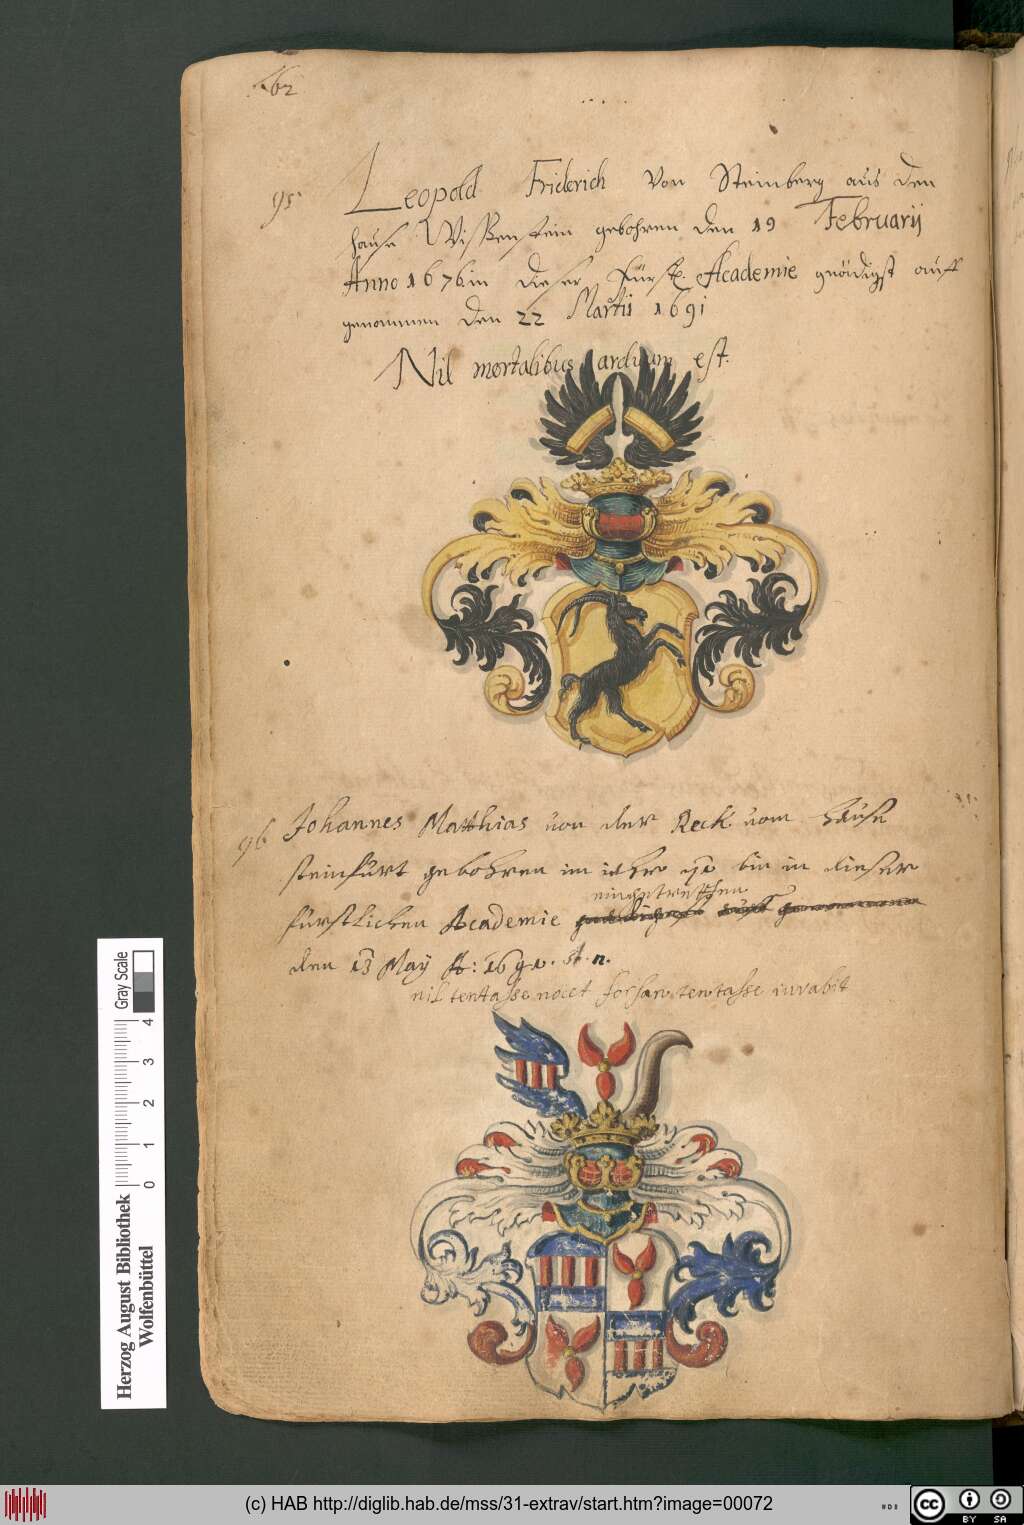 62
95.
Leopold Friderich Von Steinberg aus den
hause Wißenstein gebohren den 19 Februarij
Anno 1676. in dieser Fürstl. Academie gnädigst auff
genommen den 22 Martii 1691
Nil mortalibus arduum est.
96
Johannes Matthias von der Reck vom Hause
steinfurt gebohren im jahr bin in dieser
eingetretthen
fürstlichen Academie
den 13 May A: 1691. st. n.
nil tentasse nocet forsan tentasse iuvabit
Gray Scale
0 1 2 3 4
Herzog August Bibliothek
Wolfenbüttel
(c) HAB http://diglib.hab.de/mss/31-extrav/start.htm?image=00072
cc BY SA